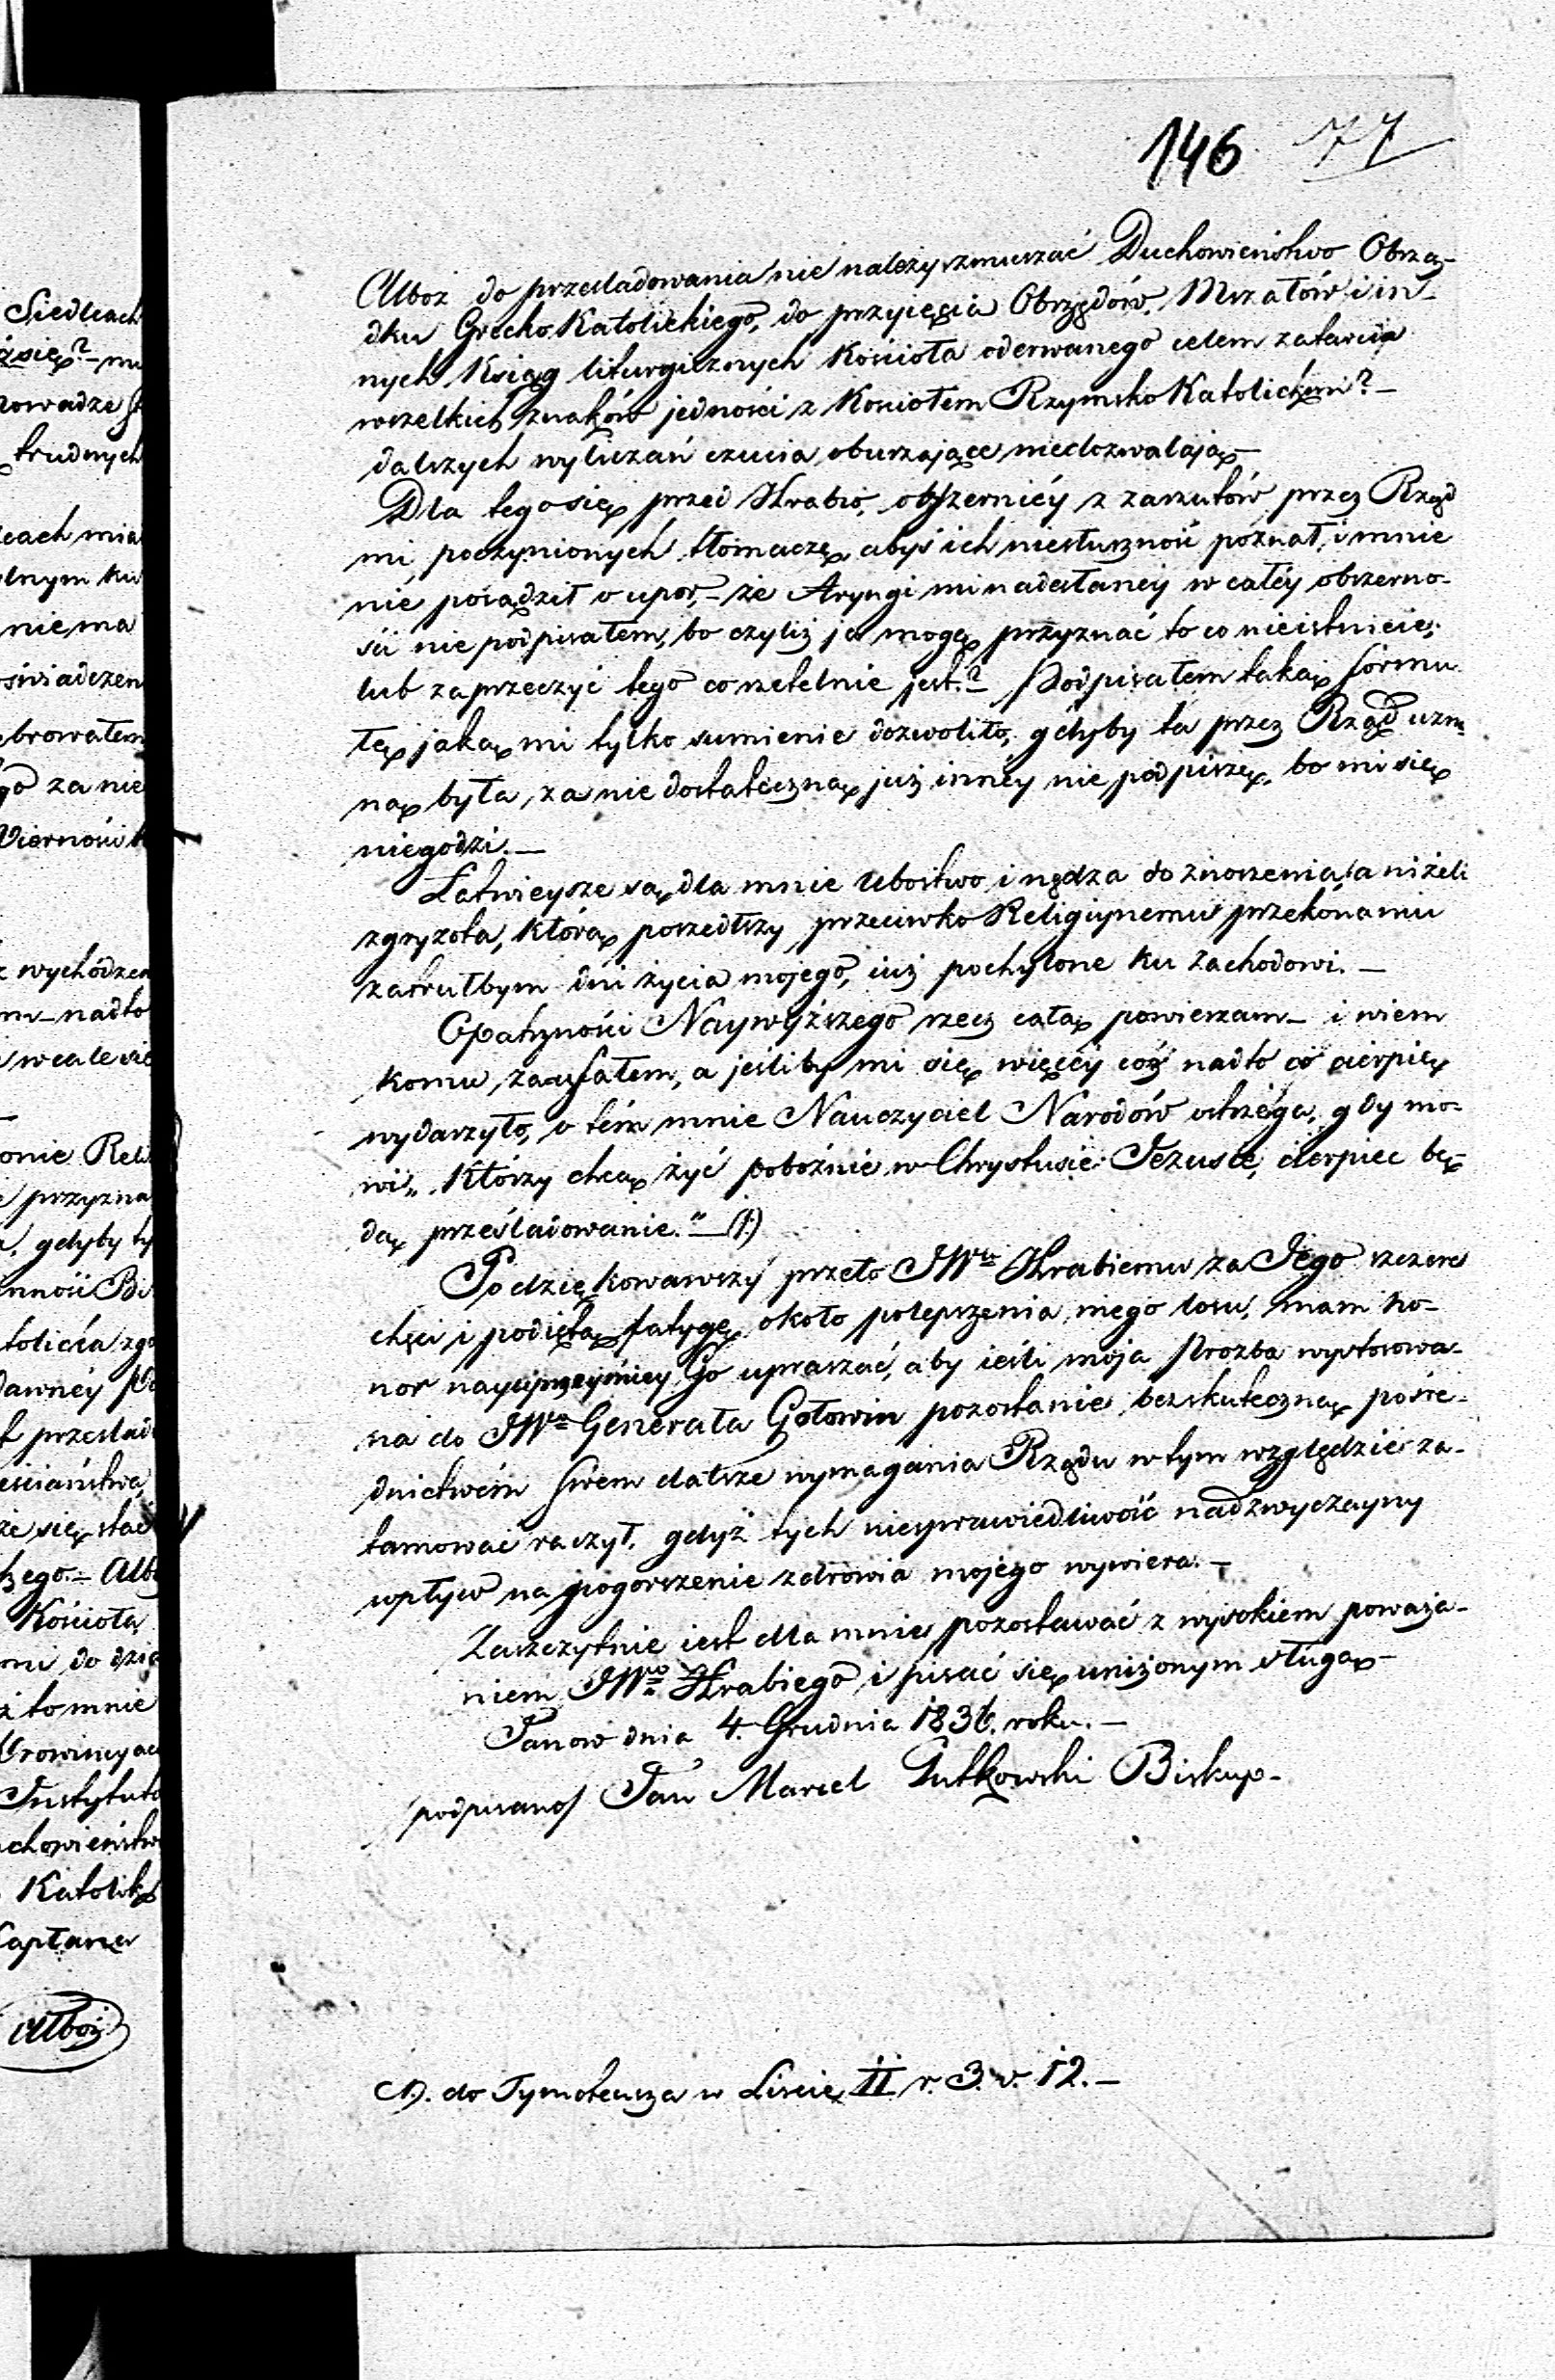 146 77
Alboż do prześladowania nie należy zmuszać Duchowieństwo Obrzą-
dku Grecko Katolickiego, do przyięcia Obrzędów, Mszałów i in-
nych Ksiąg liturgicznych Kościoła oderwanego celem zatarcia
wszelkich znaków jedności z Kościołem Rzymsko Katolickim? –
dalszych wyliczań czucia oburzające niedozwalają –
Dla tego się przed Hrabią, obszerniéy z zarzutów przez Rząd
mi poczynionych tłomaczę, abyś ich niesłuszność poznał, i mnie
nie posądził o upor, – że Aryngi mi nadesłaney w całéy obszerno-
ści nie podpisałem, bo czyliż ja mogę przyznać to co nieistnieie;
lub zaprzeczyć tego co rzetelnie jest? – Podpisałem taką formu
łę jaką mi tylko sumienie dozwoliło, gdyby ta przez Rząd uzna
ną była, za nie dostateczną już innéy nie podpiszę, bo mi się
niegodzi. –
Łatwieysze są dla mnie Ubostwo i nędza do znoszenia, a niżeli
zgryzota, którą poszedłszy przeciwko Religiynemu przekonaniu
zatrułbym dni życia mojego, iuż pochylone ku zachodowi. –
Opatrzności Naywyższego rzecz całą powierzam – i wiem
komu zaufałem, a jeśliby mi się więcéy cóś nadto co cierpię
wydarzyło, o tém mnie Nauczyciel Narodów ostrzéga, gdy mo-
wi „ Którzy chcą żyć pobożnie w Chrystusie Jezusie, cierpiec bę-
dą prześladowanie." – (1.)
Podziękowawszy przeto JWu Hrabiemu za Jego szczere
chęci i podiętą fatygę około polepszenia mego losu, mam ho-
nor nayuprzeymiey Go upraszać, aby ieśli moja Prozba wystosowa-
na do JWo Generała Gołowin pozostanie bezskuteczną, pośre-
dnictwém swem dalsze wymagania Rządu w tym względzie za-
tamować raczył, gdyż tych niesprawiedliwość nadzwyczayny
wpływ na pogorszenie zdrowia mojego wywiera. –
Zaszczytnie iest dla mnie pozostawać z wysokiem poważa-
niem JWo Hrabiego i pisać się uniżonym sługą –
Janow dnia 4. Grudnia 1836. roku. –
/podpisano/ Jan Marcel Gutkowski Biskup –
(1.). do Tymoteusza w Liscie II r. 3. w. 12. –